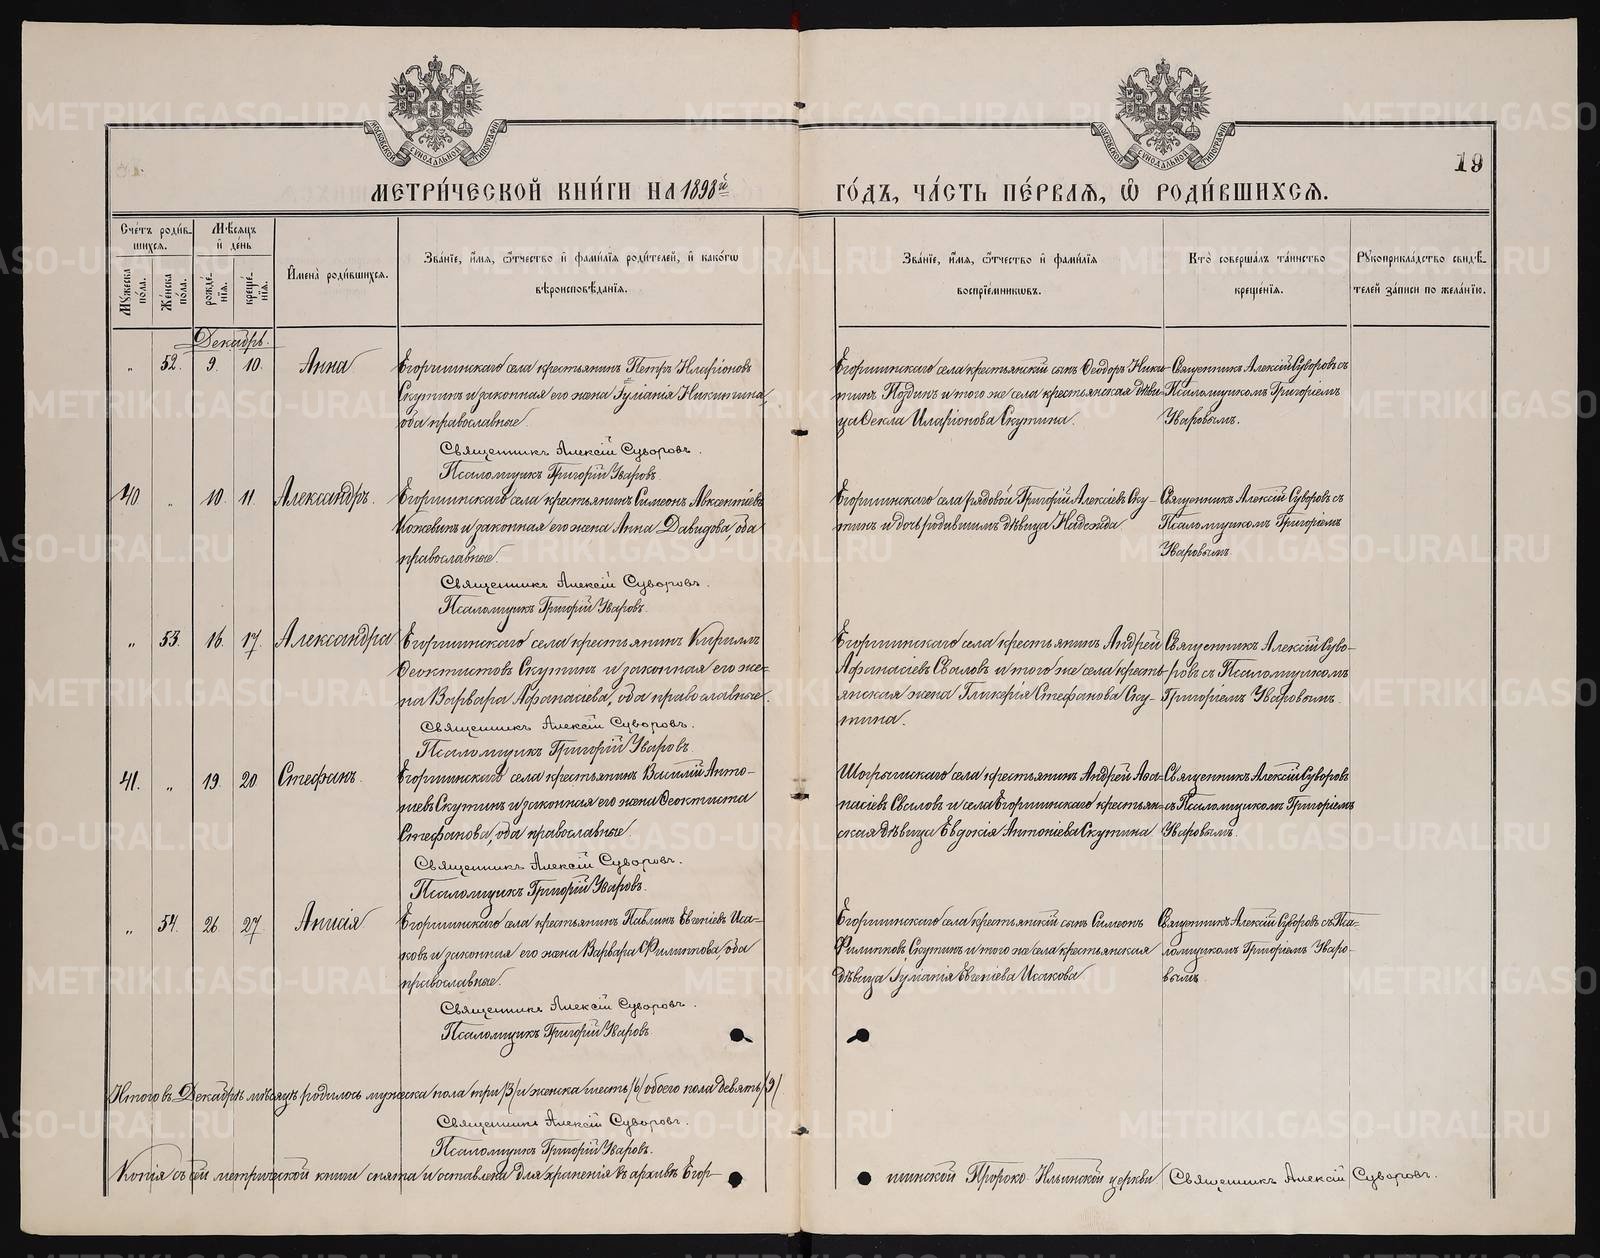 МОСКОВСКОЙ СУНОДАЛЬНОЙ ТИПОГРАФІИ
МОСКОВСКОЙ СУНОДАЛЬНОЙ ТИПОГРАФІИ
19
МЕТРИ́ЧЕСКОЙ КНИ́ГИ НА 1898й
ГО́ДЪ, ЧА́СТЬ ПЕ́РВАѦ, Ѡ҆ РОДИ́ВШИХСѦ.
Сче́тъ роди́в-
шихсѧ.
Мѣ́сѧцъ
и҆ де́нь
Мꙋжеска по́ла.
Же́нска по́ла.
рожде́-нїѧ.
креще́-нїѧ.
И҆мена̀ роди́вшихсѧ.
Зва́нїе, и҆́мѧ, ѻ҆́тчество и҆ фами́лїѧ роди́телей, и҆ како́гѡ
вѣроисповѣ́данїѧ.
Зва́нїе, и҆́мѧ, ѻ҆́тчество и҆ фами́лїѧ
воспрїе́мникѡвъ.
Кто̀ соверша́лъ та́инство
креще́нїѧ.
Рꙋкоприкла́дство свидѣ́-
телей за́писи по жела́нїю.
Декабрь.
„ 52. 9. 10. Анна
Егоршинскаго села крестьянинъ Петръ Иларіоновъ
Скутинъ и законная его жена Іуліанія Никитина,
оба православные.
Священникъ Алексій Суворовъ.
Псаломщикъ Григорій Уваровъ.
Егоршинскаго села крестьянскій сынъ Ѳеодоръ Ники-
тинъ и того же села крестьянская дѣви-
ца Ѳекла Иларіонова Скутина.
Священникъ Алексій Суворовъ съ
Псаломщикомъ Григоріемъ
Уваровымъ.
40 „ 10. 11. Александръ.
Егоршинскаго села крестьянинъ Симеонъ Авксентіевъ
и законная его жена Анна Давидова, оба
православные.
Священникъ Алексій Суворовъ.
Псаломщикъ Григорій Уваровъ.
Егоршинскаго села рядовой Григорій Алексіевъ Ску-
тинъ и дочь родившимъ дѣвица Надежда
Священникъ Алексій Суворовъ съ
Псаломщикомъ Григоріемъ
Уваровымъ
„ 53. 16. 17. Александра
Егоршинскаго села крестьянинъ Кириллъ
Ѳеоктистовъ Скутинъ и законная его же-
на Варвара Афанасіева, оба православные.
Священникъ Алексій Суворовъ.
Псаломщикъ Григорій Уваровъ.
Егоршинскаго села крестьянинъ Андрей
Афанасіевъ Сваловъ и того же села кресть-
янская жена Гликерія Стефанова Ску-
тина.
Священникъ Алексій Суво-
ровъ съ Псаломщикомъ
Григоріемъ Уваровымъ.
41. „ 19. 20 Стефанъ.
Егоршинскаго села крестьянинъ Василій Анто-
ніевъ Скутинъ и законная его жена Ѳеоктиста
Стефанова, оба православные.
Священникъ Алексій Суворовъ.
Псаломщикъ Григорій Уваровъ.
села крестьянинъ Андрей Аѳа-
насіевъ Свалов и села Егоршинскаго крестьян-
ская дѣвица Евдокія Антоніева Скутина
Священникъ Алексій Суворовъ
съ Псаломщикомъ Григоріемъ
Уваровымъ.
„ 54. 26. 27. Анисія
Егоршинскаго села крестьянинъ Павлинъ Евгеніевъ Иса-
ковъ и законная его жена Варвара Филиппова, оба
православные.
Священникъ Алексій Суворовъ.
Псаломщикъ Григорій Уваровъ.
Егоршинскаго села крестьянскій сынъ Симеонъ
Филипповъ Скутинъ и того же села крестьянская
дѣвица Іуліанія Евгеніева Исакова
Священникъ Алексій Суворовъ съ Пса-
ломщикомъ Григоріемъ Уваро-
вымъ
Итого въ Декабрѣ мѣсяцѣ родилось мужеска пола три /3/ и женска шесть /6/ обоего пола девять /9/
Священникъ Алексій Суворовъ.
Псаломщикъ Григорій Уваровъ.
Копія съ сей метрической книги снята и оставлена для храненія въ архивѣ Егор-
шинской Пророко-Ильинской церкви Священникъ Алексій Суворовъ.
METRIKI.GASO-URAL.RU